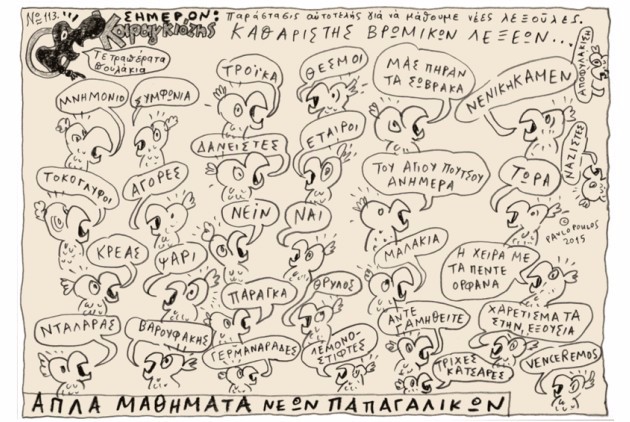 Νο 113.
ΣΗΜΕΡΟΝ:
Καραγκιόζης
Παράστασις αὐτοτελής γιά νά μάθουμε νέες λεξοῦλες.
ΚΑΘΑΡΙΣΤΗΣ ΒΡΩΜΙΚΩΝ ΛΕΞΕΩΝ...
Τετραπέρατα
Πουλάκια
ΜΝΗΜΟΝΙΟ
ΣΥΜΦΩΝΙΑ
ΤΡΟΪΚΑ
ΘΕΣΜΟΙ
ΜΑΣ ΠΗΡΑΝ
ΤΑ ΣΩΒΡΑΚΑ
ΝΕΝΙΚΗΚΑΜΕΝ
ΑΠΟΦΥΛΑΚΙΣΗ
ΔΑΝΕΙΣΤΕΣ
ΕΤΑΙΡΟΙ
ΝΑΖΙΣΤΕΣ
ΤΟΚΟΓΛΥΦΟΙ
ΑΓΟΡΕΣ
ΤΟΥ ΑΓΙΟΥ ΠΟΥΤΣΟΥ
ΑΝΗΜΕΡΑ
ΤΩΡΑ
ΝΕΙΝ
ΝΑΙ
©
PAVLOPOULOS
2015
ΚΡΕΑΣ
ΨΑΡΙ
ΜΑΛΑΚΙΑ
Η ΧΕΙΡΑ ΜΕ
ΤΑ ΠΕΝΤΕ
ΟΡΦΑΝΑ
ΠΑΡΑΓΚΑ
ΘΡΥΛΟΣ
ΝΤΑΛΑΡΑΣ
ΒΑΡΟΥΦΑΚΗΣ
ΓΕΡΜΑΝΑΡΑΔΕΣ
ΛΕΜΟΝΟ-
ΣΤΙΦΤΕΣ
ΑΝΤΕ
ΓΑΜΗΘΕΙΤΕ
ΧΑΡΕΤΙΣΜΑΤΑ
ΣΤΗΝ, ΕΞΟΥΣΙΑ
ΤΡΙΧΕΣ
ΚΑΤΣΑΡΕΣ
VENCEREMOS
ΑΠΛΑ ΜΑΘΗΜΑΤΑ ΝΕΩΝ ΠΑΠΑΓΑΛΙΚΩΝ